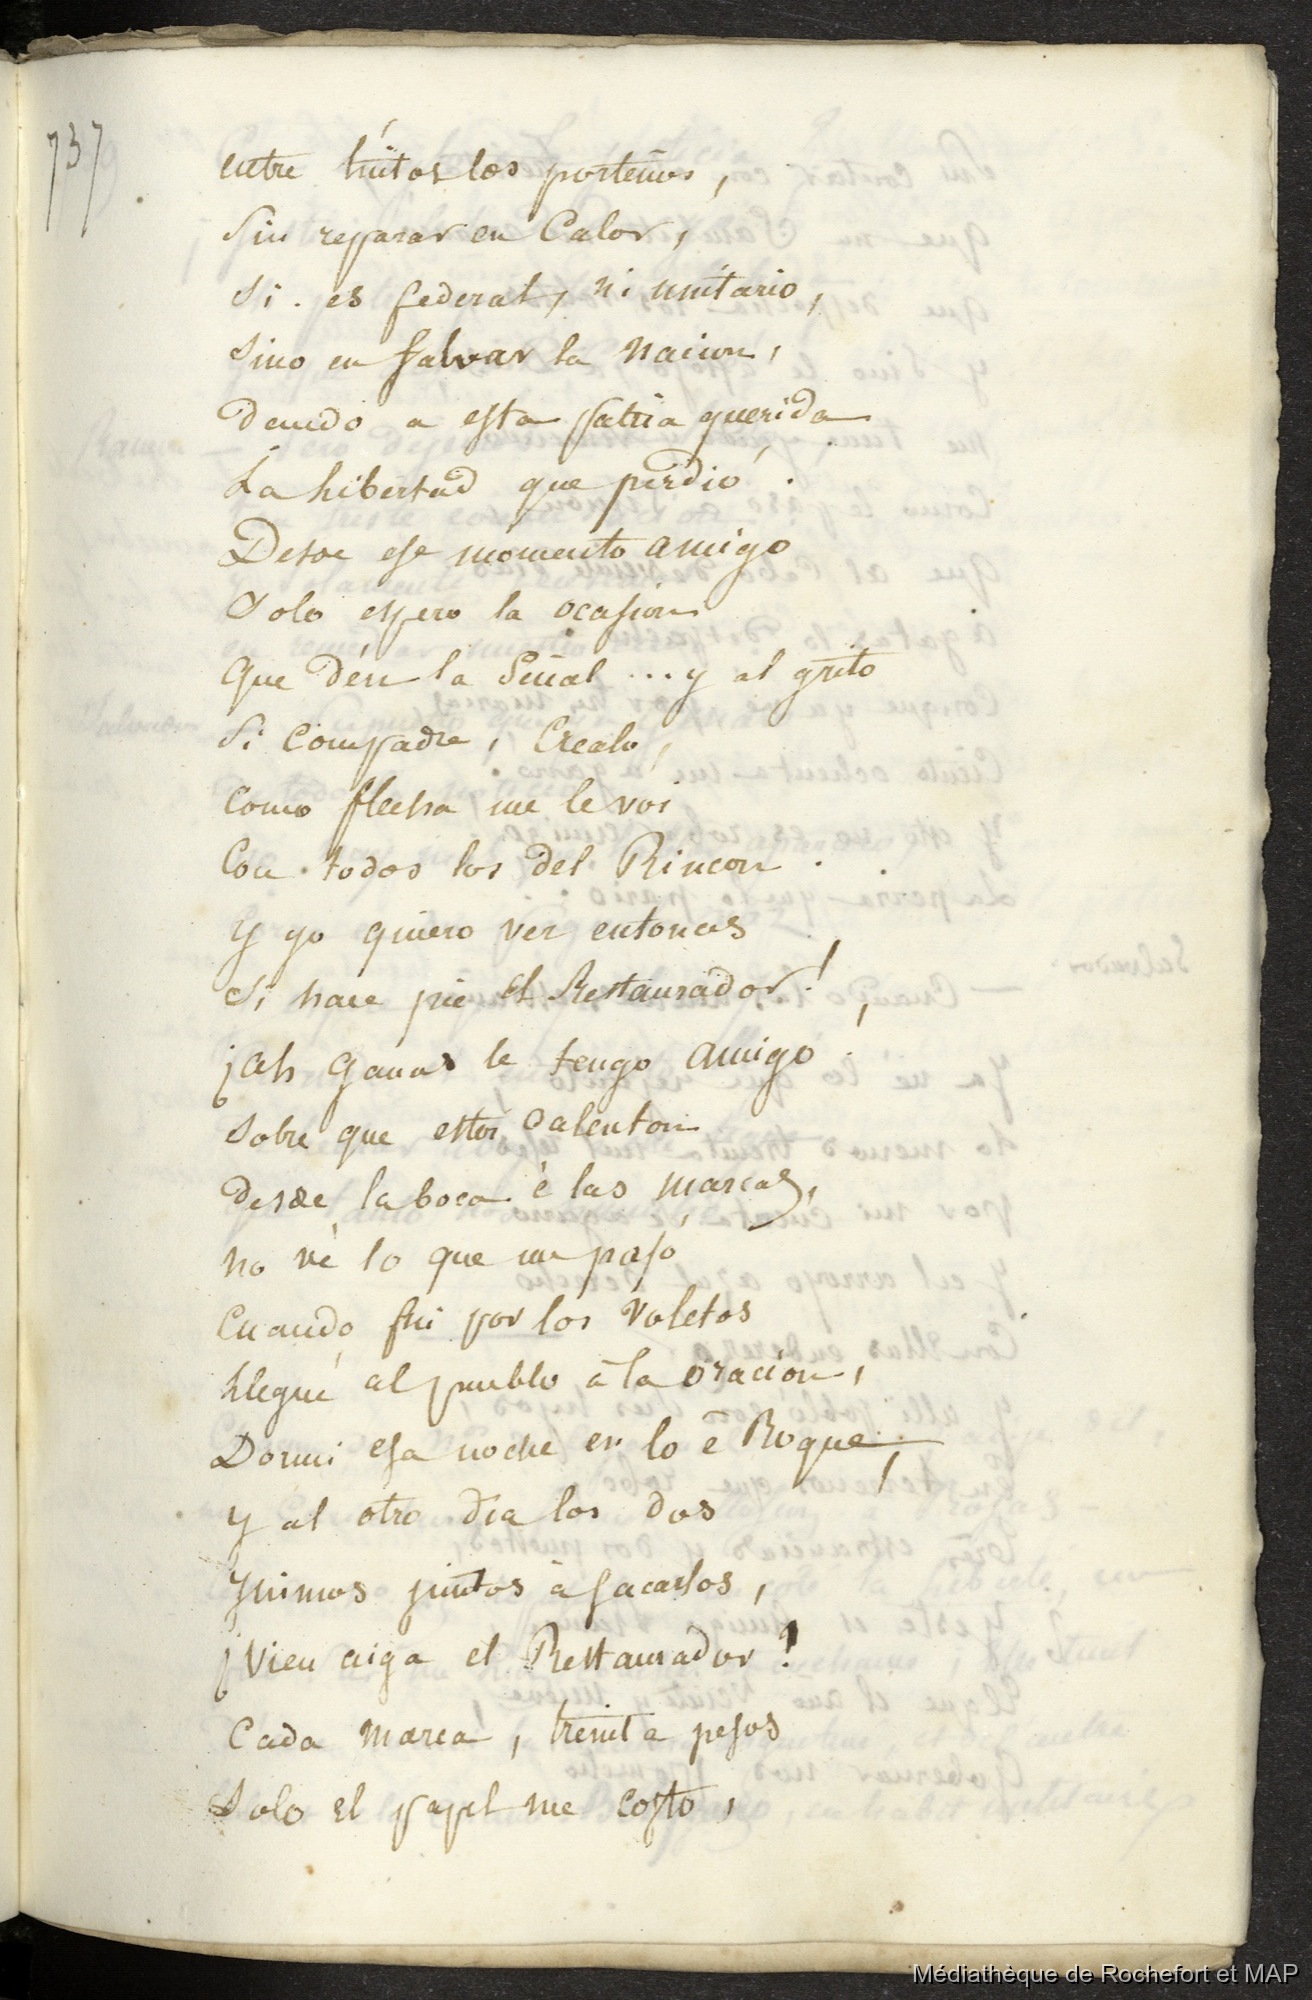 737
entre tútos los porteños,
Sin reparar en Calor,
Si. es federal, ni unitario,
Sino en salvar la nacion,
dando a esta patria querida
La Libertad que perdió.
Desde ese momento amigo
Solo espero la ocasion
que dén la señal ... y al grito
Si compadre, Crealo,
como flecha me le voi
Con todos los del Rincon.
Y yo quiero ver entonces
Si hace pie el Restaurador!
¡ah ganas le tengo amigo!
Sobre que estoi Calenton
desde la boca è las marcas,
no vè lo que me pasó
Cuando fui por los Voletos
Llegué al pueblo à la oracion,
Dormi esa noche en lo è Roque;
Y al otro dia los dos
Juimos juntos à sacarlos,
¡Vien aiga el Restaurador!
Cada marca, treinta pesos
Solo el papel me costo,
Médiathèque de Rochefort et MAP